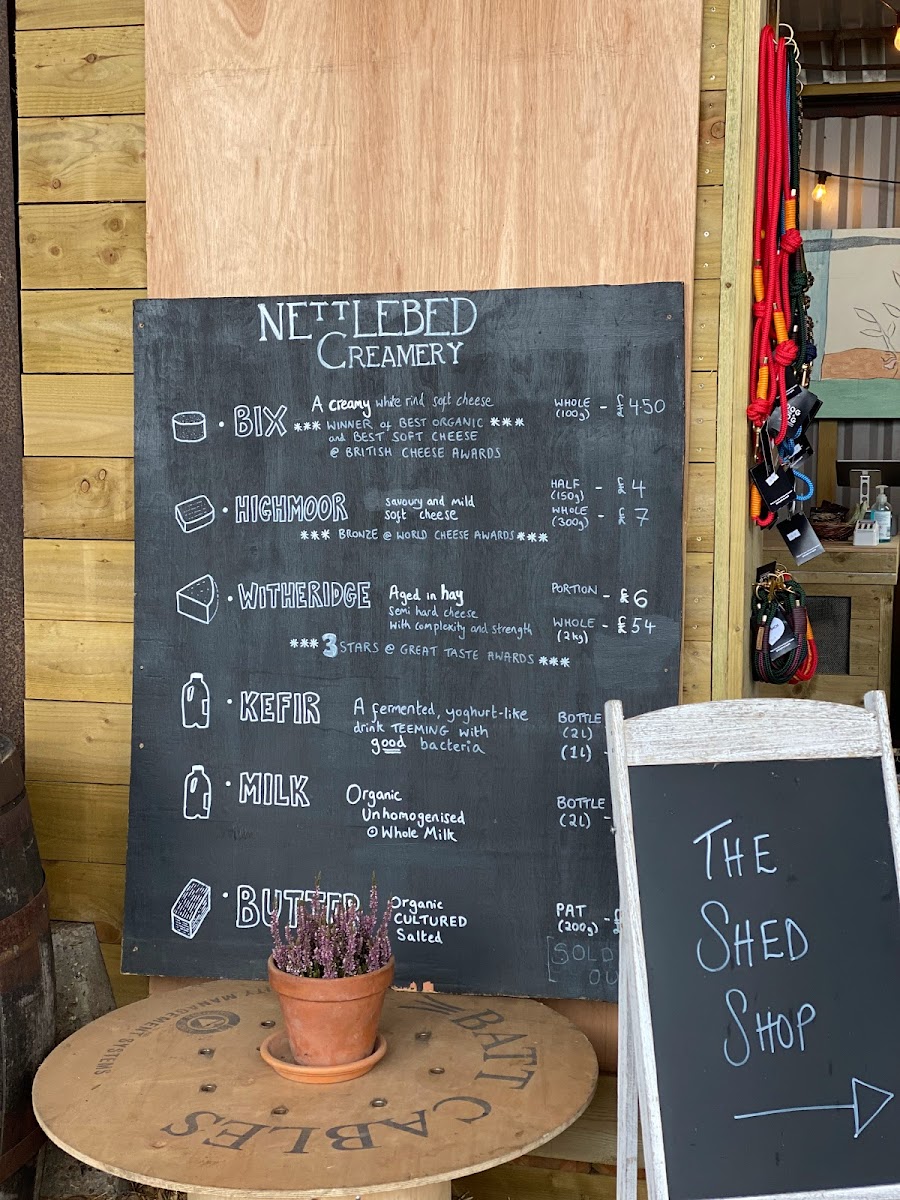 NETTLEBED
CREAMERY
· BIX
A creamy white rind soft cheese
*** WINNER of BEST ORGANIC ***
and BEST SOFT CHEESE
@ BRITISH CHEESE AWARDS
WHOLE (100g) - £4.50
· HIGHMOOR
savoury and mild
soft cheese
*** BRONZE @ WORLD CHEESE AWARDS ***
HALF (150g) - £4
WHOLE (300g) - £7
· WITHERIDGE
Aged in hay
Semi hard cheese
With complexity and strength
*** 3 STARS @ GREAT TASTE AWARDS ***
PORTION - £6
WHOLE (2kg) - £54
· KEFIR
A fermented, yoghurt-like
drink TEEMING with
good bacteria
BOTTLE
(2L)
(1L) -
· MILK
Organic
Unhomogenised
Whole Milk
BOTTLE
(2L) -
· BUTTER
Organic
CULTURED
Salted
PAT
(200g) - £
[SOLD
OU
THE
SHED
SHOP
BATT CABLES
MANAGEMENT SYSTEMS